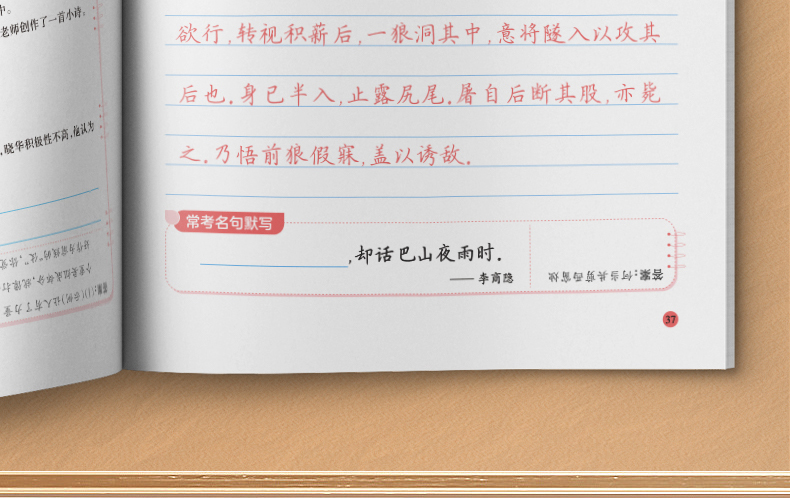 中。
老师创作了一首小诗:
,晓华积极性不高,他认为
欲行,转视积薪后,一狼洞其中,意将隧入以攻其
后也.身已半入,止露尻尾.屠自后断其股,亦毙
之.乃悟前狼假寐,盖以诱敌.
常考名句默写
,却话巴山夜雨时.
——李商隐
答案:何当共剪西窗烛
37